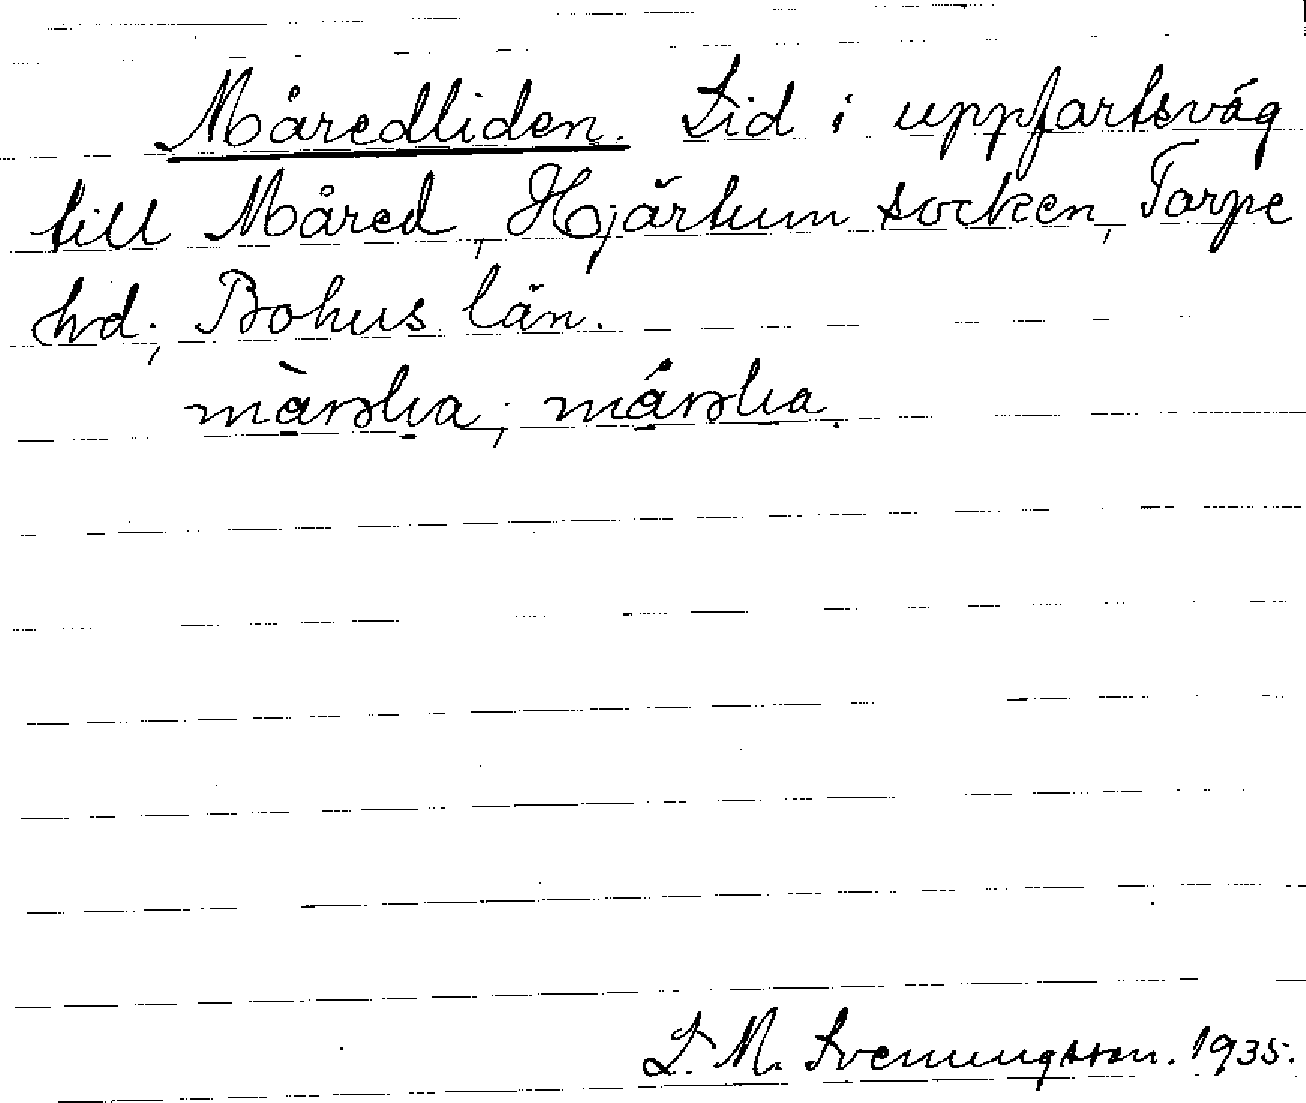 Måredliden. Lid i uppfartsväg
till Måred, Hjärtum socken, Torpe
hd; Bohus län.
L. M. Svenungsson. 1935.